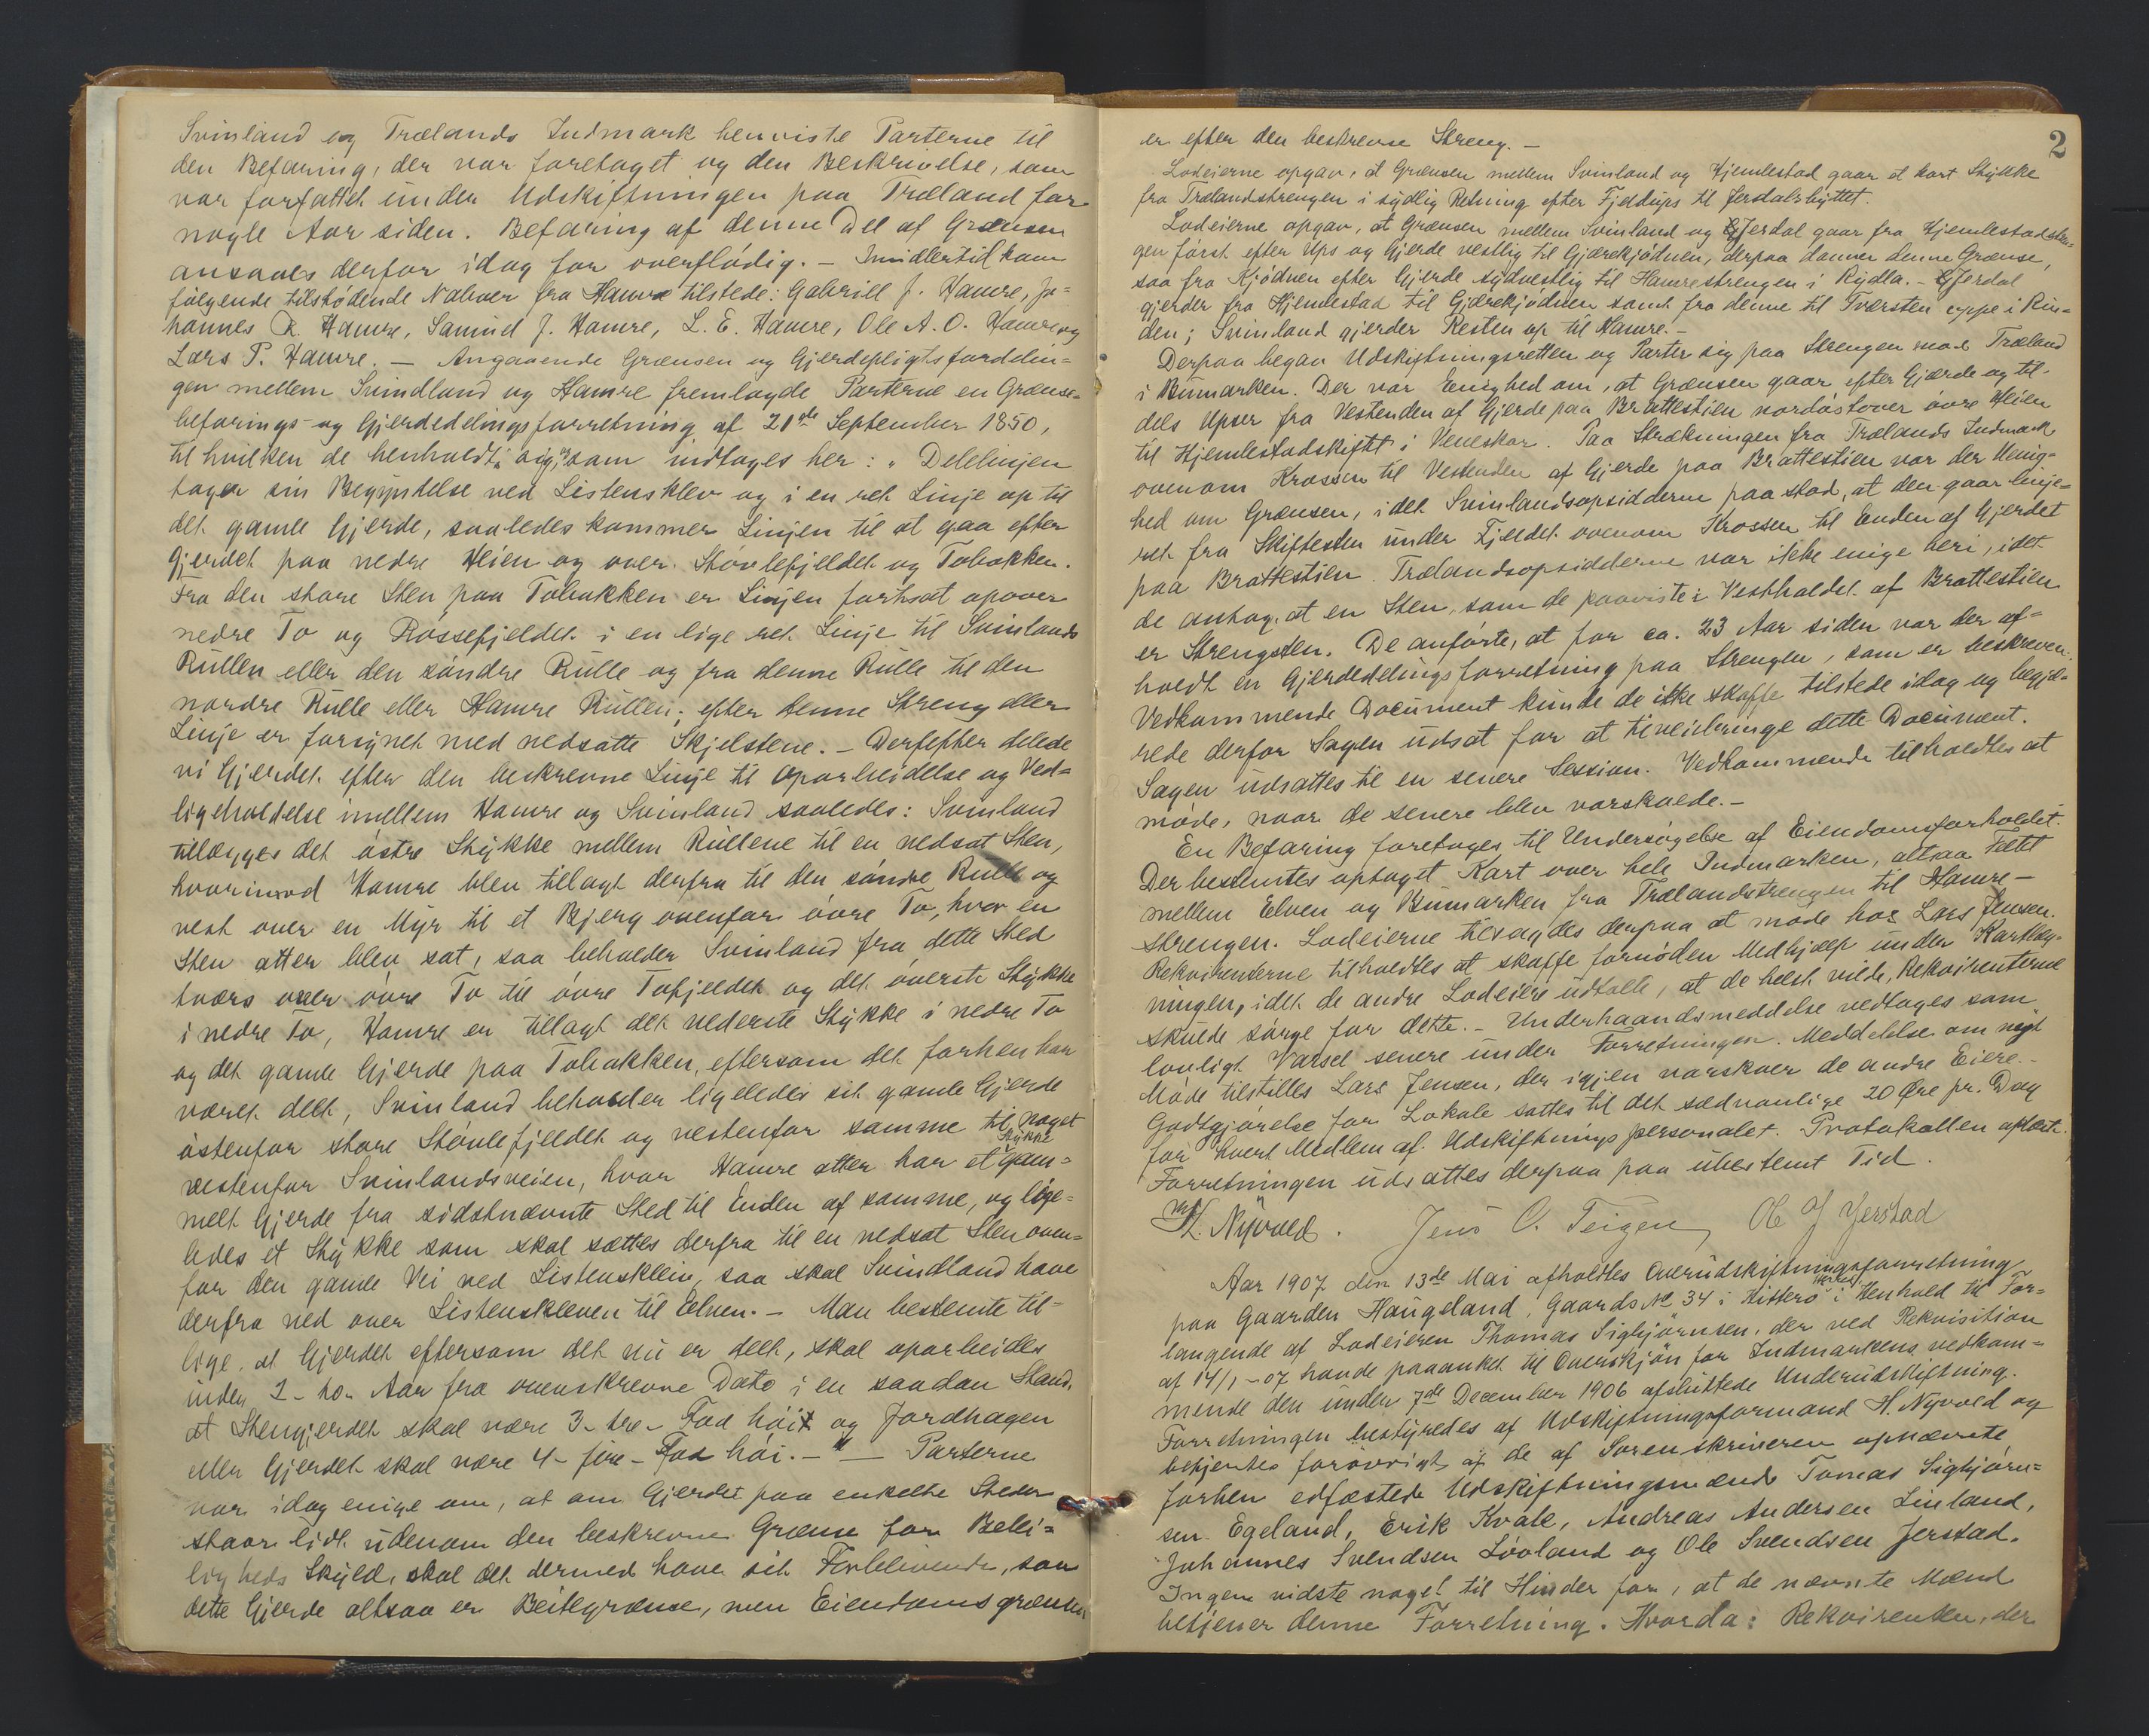 Svinland og Trælands Indmark henviste Parterne til
den Befaring, der var foretaget og den Beskrivelse, som
var forfattet under Udskiftningen paa Træland for
nogle Aar siden. Befaring af denne Del af Grænsen
ansaaes derfor idag for overflødig. – Imidlertid kom
følgende tilstødende Naboer fra Hamre tilstede: Gabriell J. Hamre, Jo=
hannes R. Hamre, Samuel J. Hamre, L. E. Hamre, Ole A. O. Hamre og
Lars P. Hamre. – Angaaende Grænsen og Gjerdepligtsfordelin=
gen mellem Svindland og Hamre fremlagde Parterne en Grænse=
befarings- og Gjerdedelingsforretning af 21de September 1850,
til hvilken de henholdt sig, som indtages her: „Delelinjen
tager sin Begyndelse ved Listensklev og i en ret Linje op til
det gamle Gjerde, saaledes kommer Linjen til at gaa efter
Gjerdet paa nedre Heien og over Størlefjeldet og Tobakken.
Fra den store Sten paa Tobakken er Linjen fortsat opover
nedre To og Rossefjeldet i en lige ret Linje til Svinlands
Rullen eller den søndre Rulle og fra denne Rulle til den
nordre Rulle eller Hamre Rullen; efter denne Streng eller
Linje er forsynet med nedsatte Skjelstene. – Derefter delede
vi Gjerdet efter den beskrevne Linje til Oparbeidelse og Ved=
ligeholdelse imellem Hamre og Svinland saaledes: Svinland
tillægges det østre Stykke mellem Rullene til en nedsat Sten,
hvorimod Hamre blev tillagt derfra til den søndre Rulle og
vest over en Myr til et Bjerg ovenfor øvre To, hvor en
Sten atter blev sat, saa beholder Svinland fra dette Sted
tværs over øvre To til øvre Tofjeldet og det øverste Stykke
i nedre To, Hamre er tillagt det nederste Stykke i nedre To
og det gamle Gjerde paa Tobakken, eftersom det forhen har
været delt, Svinland beholder ligeledes sit gamle Gjerde
østenfor store Størlefjeldet og vestenfor samme til noget
Stykke
vestenfor Svinlandsveien, hvor Hamre atter har et gam=
melt Gjerde fra sidstnævnte Sted til Enden af samme, og lige=
ledes et Stykke som skal sættes derfra til en nedsat Sten oven=
for den gamle Vei ved Listensklein, saa skal Svindland have
derfra ned over Listenskleven til Elven. – Man bestemte til=
lige, at Gjerdet eftersom det nu er delt, skal oparbeides
inden 2 – to – Aar fra ovenskrevne Dato i en saadan Stand,
at Stengjerdet skal være 3 – tre – Fod høit og Jordhagen
eller Gjerdet skal være 4 – fire – Fod høi. –" – Parterne
var idag enige om, at om Gjerdet paa enkelte Steder
staar lidt udenom den beskrevne Grænse for Belei=
ligheds Skyld, skal det dermed have sit Forblivende, saa
dette Gjerde altsaa er Beitegrænse, men Eiendomsgrænsen
2
er efter den beskrevne Streng. –
Lodeierne opgav, at Grænsen mellem Svinland og Hjemlestad gaar et kort Stykke
fra Trælandstrengen i sydlig Retning efter Fjeldups til Jerdalsbyttet.
Lodeierne opgav, at Grænsen mellem Svinland og Jerdal gaar fra Hjemlestadstren=
gen først efter Ups og Gjerde vestlig til Gjærekjødnen, derpaa danner denne Grænse,
saa fra Kjødnen efter Gjerde sydvestlig til Hamrestrengen i Rydla. – Jerdal
gjerder fra Hjemlestad til Gjærekjødnen samt fra denne til Tværsten oppe i Rin=
den; Svinland gjerder Resten op til Hamre. –
Derpaa begav Udskiftningsretten og Parter sig paa Strengen mod Træland
i Bumarken. Der var Enighed om, at Grænsen gaar efter Gjærde og til=
dels Upser fra Vestenden af Gjerde paa Brattestien nordøstover øvre Heien
til Hjemlestadskiftet i Veneskar. Paa Strækningen fra Trælands Indmark
ovenom Krossen til Vestenden af Gjerde paa Brattestien var der Uenig=
hed om Grænsen, idet Svinlandsopsidderne paastod, at den gaar linje=
ret fra Skiftesten under Fjeldet ovenom Krossen til Enden af Gjerdet
paa Brattestien. Trælandsopsidderne var ikke enige heri, idet
de antog, at en Sten, som de paaviste i Vestholdet af Brattestien
er Strengsten. De anførte, at for ca. 23 Aar siden var der af=
holdt en Gjerdedelingsforretning paa Strengen, som er beskreven.
Vedkommende Document kunde de ikke skaffe tilstede idag og begjæ=
rede derfor Sagen udsat for at tilveiebringe dette Document.
Sagen udsattes til en senere Session. Vedkommende tilholdtes at
møde, naar de senere blev varskuede. –
En Befaring foretoges til Undersøgelse af Eiendomsforholdet.
Der bestemtes optaget Kart over hele Indmarken, altsaa Feltet
mellem Elven og Bumarken fra Trælandstrengen til Hamre–
strengen. Lodeierne tilsagdes derpaa at møde hos Lars Jensen.
Rekvirenterne tilholdtes at skaffe fornøden Medhjælp under Kartlæg=
ningen, idet de andre Lodeiere udtalte, at de helst vilde, Rekvirenterne
skulde sørge for dette. – Underhaandsmeddelse vedtoges som
lovligt Varsel senere under Forretningen. Meddelelse om nyt
Møde tilstilles Lars Jensen, der igjen varskuer de andre Eiere. –
Godtgjørelse for Lokale sattes til det sædvanlige 20 Øre pr. Dag
for hvert Medlem af Udskiftningspersonalet. Protokollen oplæst.
Forretningen udsattes derpaa paa ubestemt Tid.
H. Nyvold. Jens O. Teigen Ole J Jerstad
Aar 1907 den 13de Mai afholdtes Overudskiftningsforretning
paa Gaarden Haugeland, Gaards No 34 i Hitterø Herred i Henhold til For=
langende af Lodeieren Thomas Sigbjørnsen, der ved Rekvisition
af 14/1 – 07 havde paaanket til Overskjøn for Indmarkens vedkom=
mende den under 7de December 1906 afsluttede Underudskiftning.
Forretningen bestyredes af Udskiftningsformand H. Nyvold og
betjentes forøvrigt af de af Sorenskriveren opnævnte
forhen edfæstede Udskiftningsmænd Tomas Sigbjørn=
sen Egeland, Erik Kvale, Andreas Andersen Linland,
Johannes Svendsen Lovland og Ole Svendsen Jerstad.
Ingen vidste noget til Hinder for, at de nævnte Mænd
betjener denne Forretning. Hvorda: Rekvirenten, der